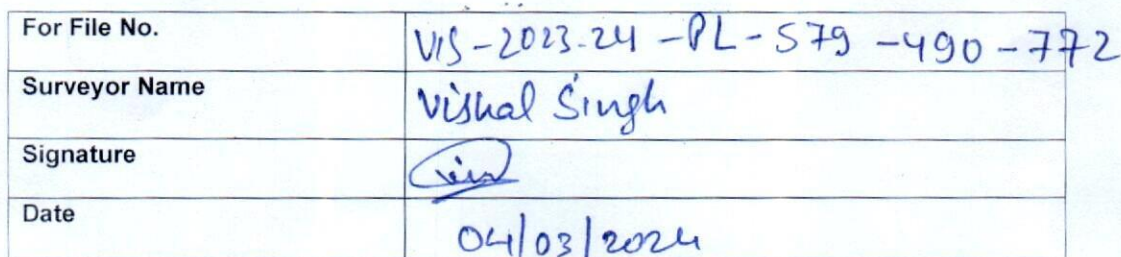 For File No. VIS-2023-24-PL-579-490-772
Surveyor Name Vishal Singh
Signature
Date 04/03/2024